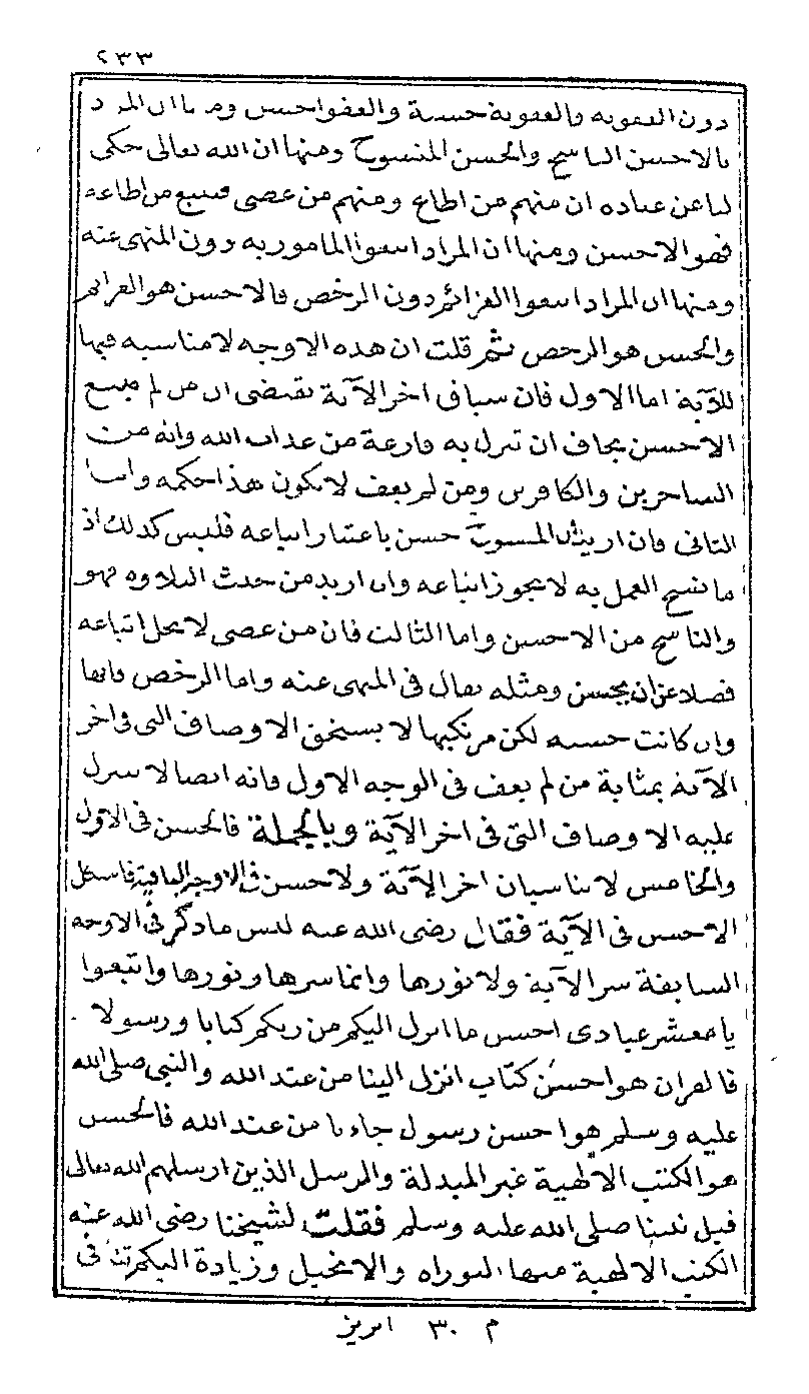 ٢٣٣
دون العقوبة فالعقوبة حسنة والعفو احسن ومنها ان المراد
بالاحسن الناسخ والحسن المنسوخ ومنها ان الله تعالى حكى
لنا عن عباده ان منهم من اطاع ومنهم من عصى فنتبع من اطاعه
فهو الاحسن ومنها ان المراد اتبعوا المامور به دون المنهى عنه
ومنها ان المراد اتبعوا العزائم دون الرخص فالاحسن هو العزائم
والحسن هو الرخص ثم قلت ان هذه الاوجه لا مناسبه فيها
للآية اما الاول فان سياق اخر الآية تقتضى ان من لم يتبع
الاحسن يخاف ان تنزل به قارعة من عذاب الله وانه من
الساخرين والكافرين ومن لم يعف لا يكون هذا حكمه واما
الثانى فان اريد ان المنسوخ حسن باعتبار اتباعه فليس كذلك اذ
ما نسخ العمل به لا يجوز اتباعه وان اريد من حيث التلاوه فهو
والناسخ من الاحسن واما الثالث فان من عصى لا يحل اتباعه
فضلا عن ان يحسن ومثله يقال فى المنهى عنه واما الرخص فانها
وان كانت حسنه لكن مرتكبها لا يستحق الاوصاف التى فى اخر
الآية بمثابة من لم يعف فى الوجه الاول فانه ايضا لا تنزل
عليه الاوصاف التى فى اخر الآية وبالجملة فالحسن فى الاول
والخامس لا يناسبان اخر الآية ولا حسن فى الاوجه الباقية فاشكل
الاحسن فى الآية فقال رضى الله عنه ليس ما ذكر فى الاوجه
السابقة سر الآية ولا نورها وانما سرها ونورها واتبعوا
يا معشر عبادى احسن ما انزل اليكم من ربكم كتابا ورسولا
فالقران هو احسن كتاب انزل الينا من عند الله والنبى صلى الله
عليه وسلم هو احسن رسول جاءنا من عند الله فالحسن
هو الكتب الالهية غير المبدلة والرسل الذين ارسلهم الله تعالى
قبل نبينا صلى الله عليه وسلم فقلت لشيخنا رضى الله عنه
الكتب الالهية منها التوراه والانجيل وزيادة اليكم فى
م ٣٠ ابريز